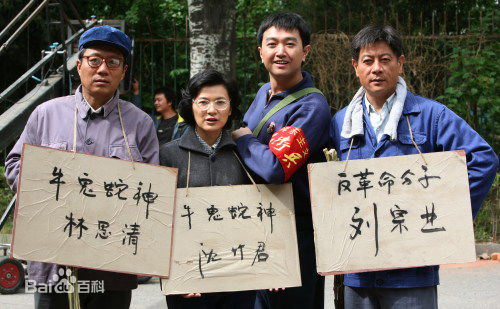 牛鬼蛇神
林思清
牛鬼蛇神
沈竹君
反革命分子
刘宗
Bai百科